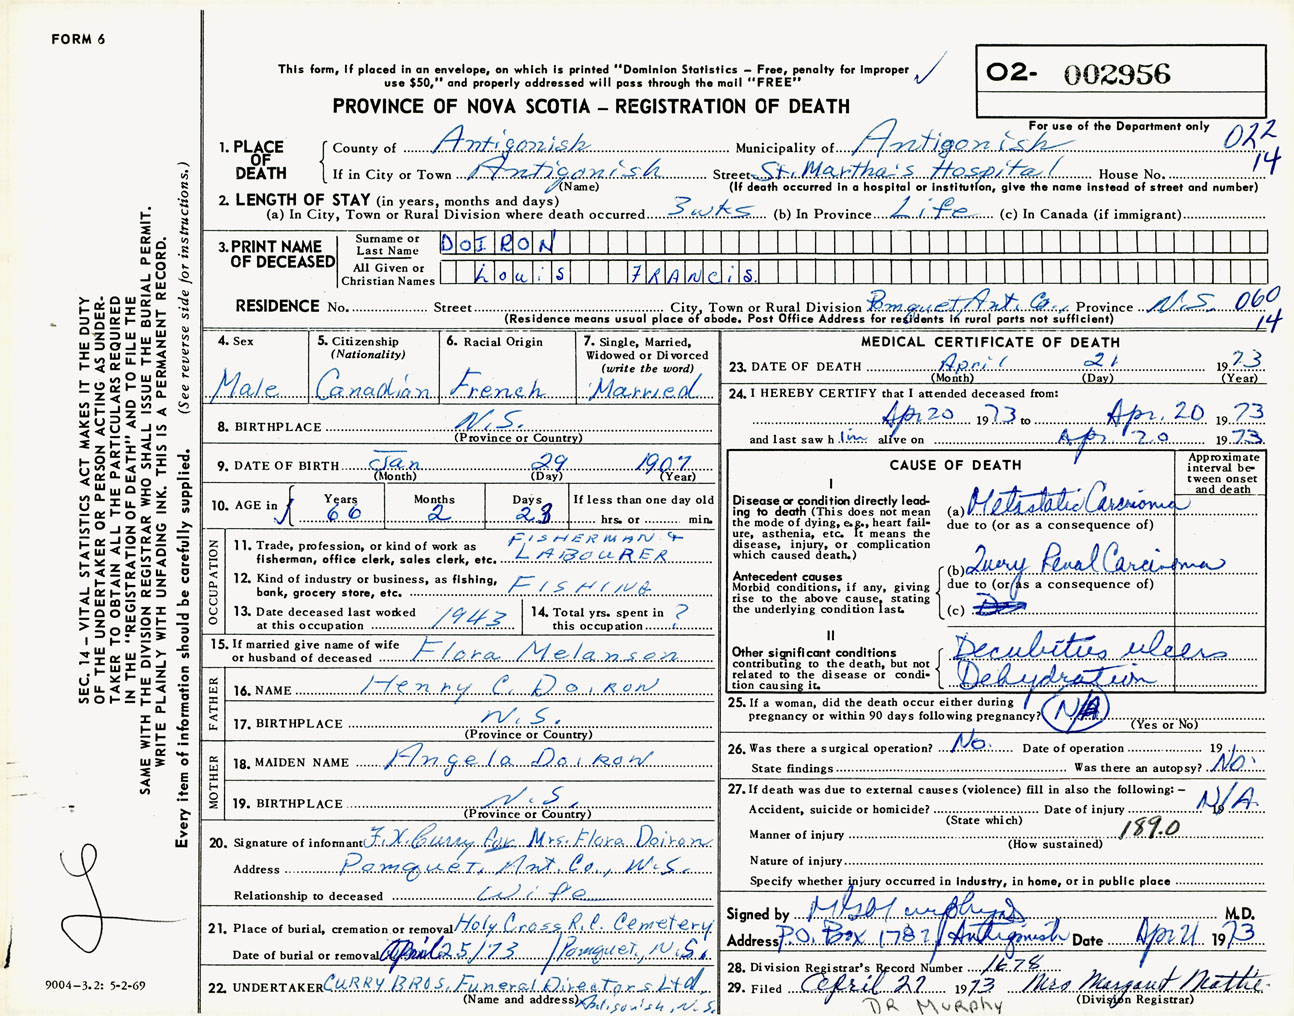 FORM 6
This form, if placed in an envelope, on which is printed "Dominion Statistics – Free, penalty for improper
use $50," and properly addressed will pass through the mail "FREE"
PROVINCE OF NOVA SCOTIA – REGISTRATION OF DEATH
02- 002956
For use of the Department only
022
14
1. PLACE OF DEATH
County of Antigonish Municipality of Antigonish
If in City or Town Antigonish Street St. Martha's Hospital House No.
(Name) (If death occurred in a hospital or institution, give the name instead of street and number)
2. LENGTH OF STAY (in years, months and days)
(a) In City, Town or Rural Division where death occurred 3 wks (b) In Province Life (c) In Canada (if immigrant)
3. PRINT NAME OF DECEASED
Surname or Last Name DOIRON
All Given or Christian Names Louis FRANCIS
RESIDENCE No. Street City, Town or Rural Division Pomquet, Ant. Co., Province N.S. 060
14
(Residence means usual place of abode. Post Office Address for residents in rural parts not sufficient)
4. Sex
Male
5. Citizenship
(Nationality)
Canadian
6. Racial Origin
French
7. Single, Married,
Widowed or Divorced
(write the word)
Married
8. BIRTHPLACE N.S.
(Province or Country)
9. DATE OF BIRTH Jan 29 1907
(Month) (Day) (Year)
10. AGE in Years 66 Months 2 Days 23 If less than one day old
hrs. or min.
OCCUPATION
11. Trade, profession, or kind of work as
fisherman, office clerk, sales clerk, etc.
FISHERMAN +
LABOURER
12. Kind of industry or business, as fishing,
bank, grocery store, etc. FISHING
13. Date deceased last worked
at this occupation 1943
14. Total yrs. spent in
this occupation ?
15. If married give name of wife
or husband of deceased Flora Melanson
FATHER
16. NAME Henry C. Doiron
17. BIRTHPLACE N.S.
(Province or Country)
MOTHER
18. MAIDEN NAME Angela Doiron
19. BIRTHPLACE N.S.
(Province or Country)
20. Signature of informant F.X. Curry for Mrs. Flora Doiron
Address Pomquet, Ant. Co., N.S.
Relationship to deceased Wife
21. Place of burial, cremation or removal Holy Cross R.C. Cemetery
Date of burial or removal April 25/73 Pomquet, N.S.
22. UNDERTAKER CURRY BROS. Funeral Directors Ltd.
(Name and address) Antigonish, N.S.
MEDICAL CERTIFICATE OF DEATH
23. DATE OF DEATH April 21 1973
(Month) (Day) (Year)
24. I HEREBY CERTIFY that I attended deceased from:
Apr 20 1973 to Apr. 20 1973
and last saw him alive on Apr 20 1973
CAUSE OF DEATH
Approximate
interval be-
tween onset
and death
I
Disease or condition directly lead-
ing to death (This does not mean
the mode of dying, e.g., heart fail-
ure, asthenia, etc. It means the
disease, injury, or complication
which caused death.)
(a) Metastatic Carcinoma
due to (or as a consequence of)
Antecedent causes
Morbid conditions, if any, giving
rise to the above cause, stating
the underlying condition last.
(b) Query Renal Carcinoma
due to (or as a consequence of)
(c)
II
Other significant conditions
contributing to the death, but not
related to the disease or condi-
tion causing it.
Decubitus ulcers
Dehydration
25. If a woman, did the death occur either during
pregnancy or within 90 days following pregnancy? N/A
(Yes or No)
26. Was there a surgical operation? No. Date of operation 19
State findings Was there an autopsy? No.
27. If death was due to external causes (violence) fill in also the following: –
Accident, suicide or homicide? Date of injury 19 N/A
(State which)
Manner of injury 189.0
(How sustained)
Nature of injury
Specify whether injury occurred in industry, in home, or in public place
Signed by M.D.
Address P.O. Box 1787, Antigonish Date Apr 21 1973
28. Division Registrar's Record Number 1678
29. Filed April 27 1973 Mrs Margaret Mattie
(Division Registrar)
DR MURPHY
SEC. 14 – VITAL STATISTICS ACT MAKES IT THE DUTY
OF THE UNDERTAKER OR PERSON ACTING AS UNDER-
TAKER TO OBTAIN ALL THE PARTICULARS REQUIRED
IN THE "REGISTRATION OF DEATH" AND TO FILE THE
SAME WITH THE DIVISION REGISTRAR WHO SHALL ISSUE THE BURIAL PERMIT.
WRITE PLAINLY WITH UNFADING INK. THIS IS A PERMANENT RECORD.
Every item of information should be carefully supplied. (See reverse side for instructions.)
9004-3.2: 5-2-69